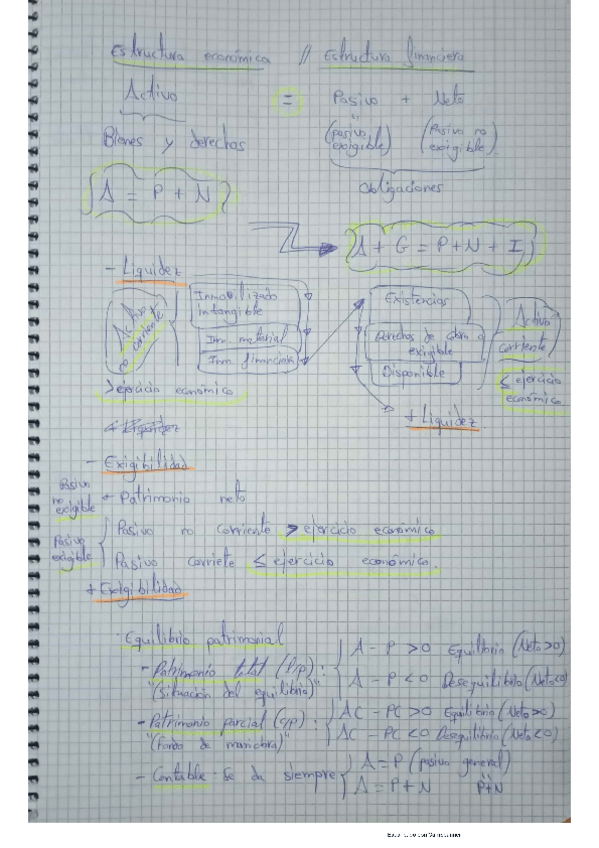 Estructura económica // Estructura financiera
Activo = Pasivo + Neto
Bienes y derechos (pasivo exigible) (Pasivo no exigible)
Obligaciones
A = P + N
A + G = P + N + I
- Liquidez
Activo no corriente
Inmovilizado intangible
Inm. material
Inm. financiero
> ejercicio económico
Existencias
Derechos de cobro o exigible
Disponible
Activo corriente
≤ ejercicio económico
+ Liquidez
- Exigibilidad
Pasivo no exigible
Patrimonio neto
Pasivo exigible
Pasivo no corriente > ejercicio económico
Pasivo corriete ≤ ejercicio económico.
+ Exigibilidad
Equilibrio patrimonial
- Patrimonio total (l/p): A - P > 0 Equilibrio (Neto>0)
"(situación del equilibrio)" A - P < 0 Desequilibrio (Neto<0)
- Patrimonio parcial (c/p): AC - PC > 0 Equilibrio (Neto>0)
"(fondo de maniobra)" AC - PC < 0 Desequilibrio (Neto<0)
- Contable - Se da siempre A = P (pasivo general)
A = P + N P+N